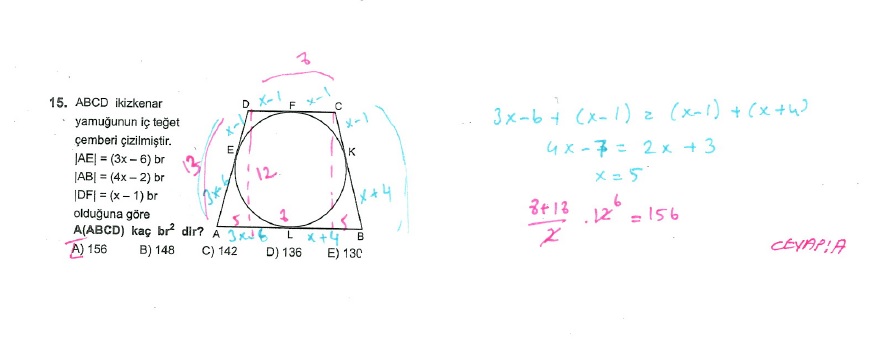 15. ABCD ikizkenar
yamuğunun iç teğet
çemberi çizilmiştir.
|AE| = (3x – 6) br
|AB| = (4x – 2) br
|DF| = (x – 1) br
olduğuna göre
A(ABCD) kaç br² dir?
A) 156 B) 148 C) 142 D) 136 E) 130
8
x-1 x-1
D F C
x-1 x-1
E K
13 12
3x-6 x+4
5 8 5
A L B
3x-6 x+4
3x-6 + (x-1) = (x-1) + (x+4)
4x-7 = 2x+3
x=5
8+18/2 . 12 6 = 156
CEVAP: A